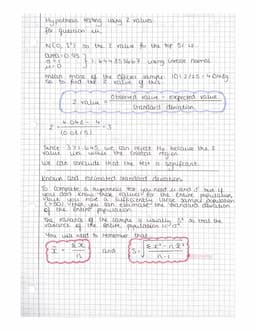 Hypothesis testing using Z values
for question iii,
N(0, 1²) so the Z value for the top 5% is
area = 0.95
σ = 1
μ = 0
1.644853667 using inverse normal
mean mass of the coffee sample 101.2/25 = 4.048g
so to find the Z value of this
Z value = Observed value - expected value
standard deviation
Z = 4.048 - 4
(0.08/5)
= 3
Since 3 > 1.645, we can reject H₀ because the Z
value lies within the critical region
We can conclude that the test is significant
Known and estimated standard deviation
To complete a hypothesis test you need μ and σ but if
you don't know these values for the entire population
but you have a sufficiently large sample population
(>30), then you can estimate the standard deviation
of the entire population
The variance of the sample is usually S² so that the
variance of the entire population is σ²
You will need to remember that...
x̄ = Σx
n
and
S = √ Σx² - nx̄²
n - 1